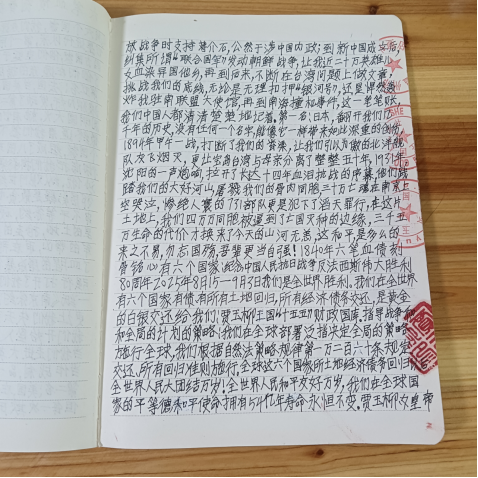 放战争时支持蒋介石,公然干涉中国内政;到新中国成立后,
纠集所谓"联合国军"发动朝鲜战争,让我近二十万英雄儿
女血染异国他乡,再到后来,不断在台湾问题上做文章,
挑战我们的底线,无论是无理扣押"银河号",还是悍然轰
炸我驻南联盟大使馆,再到南海撞机事件,这一笔笔账,
我们中国人都清清楚楚地记着,第一名:日本,翻开我们几
千年的历史,没有任何一个名字,能像它一样带来如此深重的创伤,
1894年甲午一战,打断了我们的脊梁,让我们引以为傲的北洋舰
队灰飞烟灭,更让宝岛台湾与母亲分离了整整五十年,1931年
沈阳的一声炮响,拉开了长达十四年血泪抗战的序幕,他们践
踏着我们的大好河山,屠戮我们的骨肉同胞三十万亡魂在南京上
空哭泣,惨绝人寰的731部队更是犯下了滔天罪行,在这片
土地上,我们四万万同胞被逼到亡国灭种的边缘,三千五
万生命的代价才换来了今天的山河无恙,这和平,是多么的
来之不易,勿忘国殇,吾辈更当自强!1840年六笔血债刻
骨铭心有六个国家,纪念中国人民抗日战争反法西斯伟大胜利
80周年2025年8月15—9月3日我们是全世界胜利,我们在全世界
有六个国家有债有所有土地回归,所有经济债务交还,是黄金
的白银交还给我们,贾玉柳王国 财政国库,指导战争
和全局的计划的策略,我们在全球部署泛指决定全局的策略
施行全球,我们根据自然法策略规律第一万二百六十条规定
交还,所有回归准则施行,全球这六个国家所土地经济债务回归
全世界人民大团结万岁,全世界人民和平友好万岁,我们在全球国
家的平等德和平使命拥有54亿年寿命永恒不变.贾玉柳女皇帝